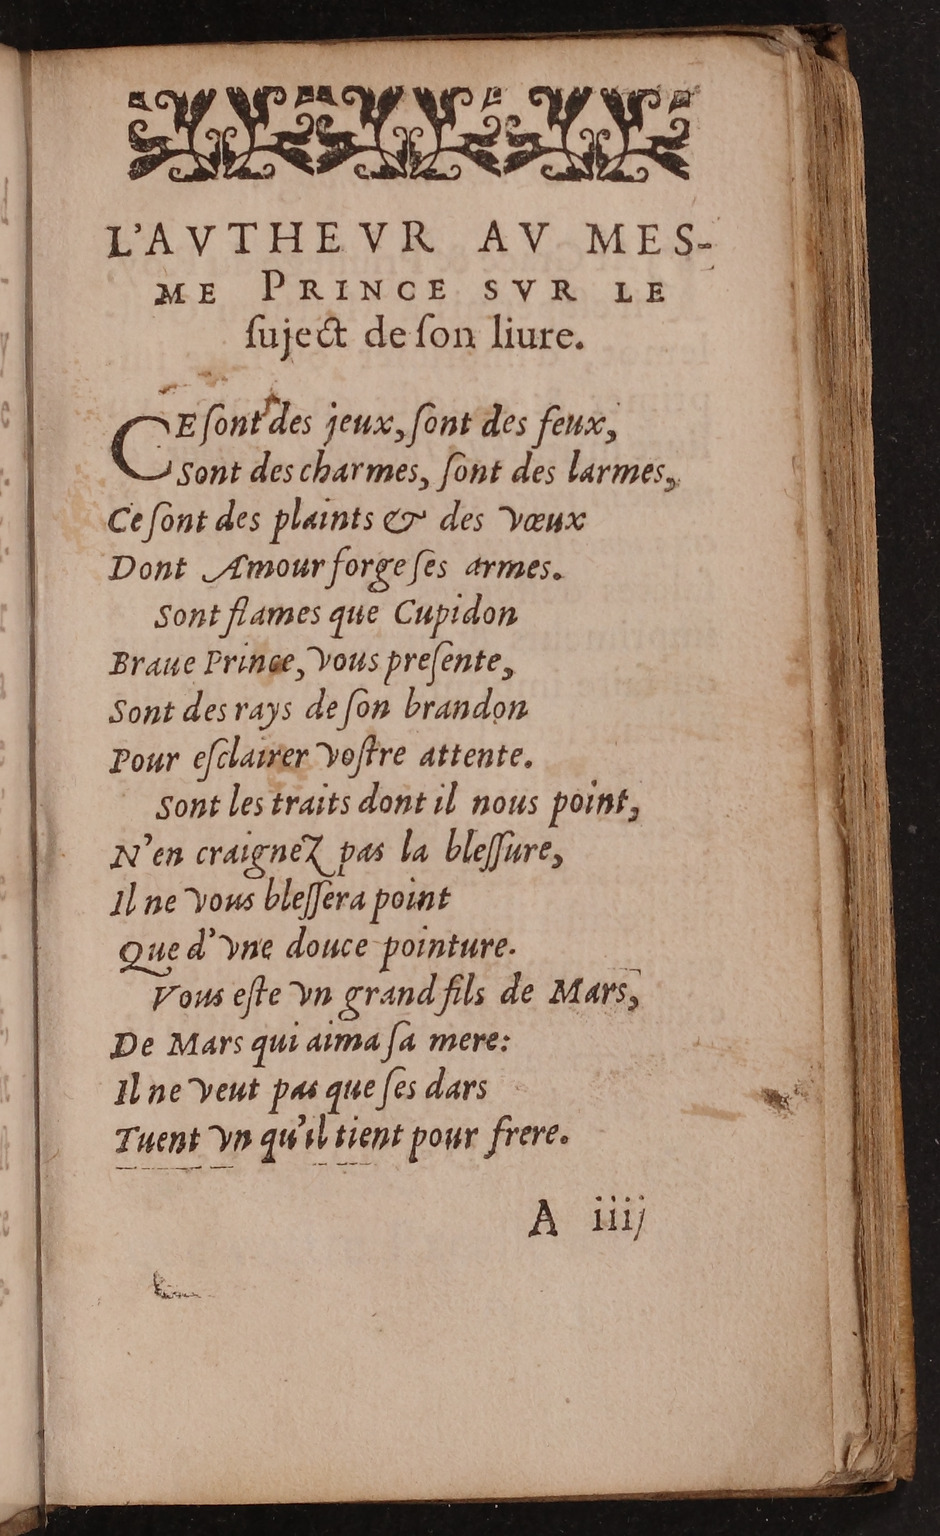 L'AVTHEVR AV MES-
ME PRINCE SVR LE
ſuject de ſon liure.
CE ſont des jeux, ſont des feux,
Sont des charmes, ſont des larmes,
Ce ſont des plaints & des vœux
Dont Amour forge ſes armes.
Sont flames que Cupidon
Braue Prince, vous preſente,
Sont des rays de ſon brandon
Pour eſclairer voſtre attente.
Sont les traits dont il nous point,
N'en craignez pas la bleſſure,
Il ne vous bleſſera point
Que d'vne douce pointure.
Vous eſte vn grand fils de Mars,
De Mars qui aima ſa mere:
Il ne veut pas que ſes dars
Tuent vn qu'il tient pour frere.
A iiij